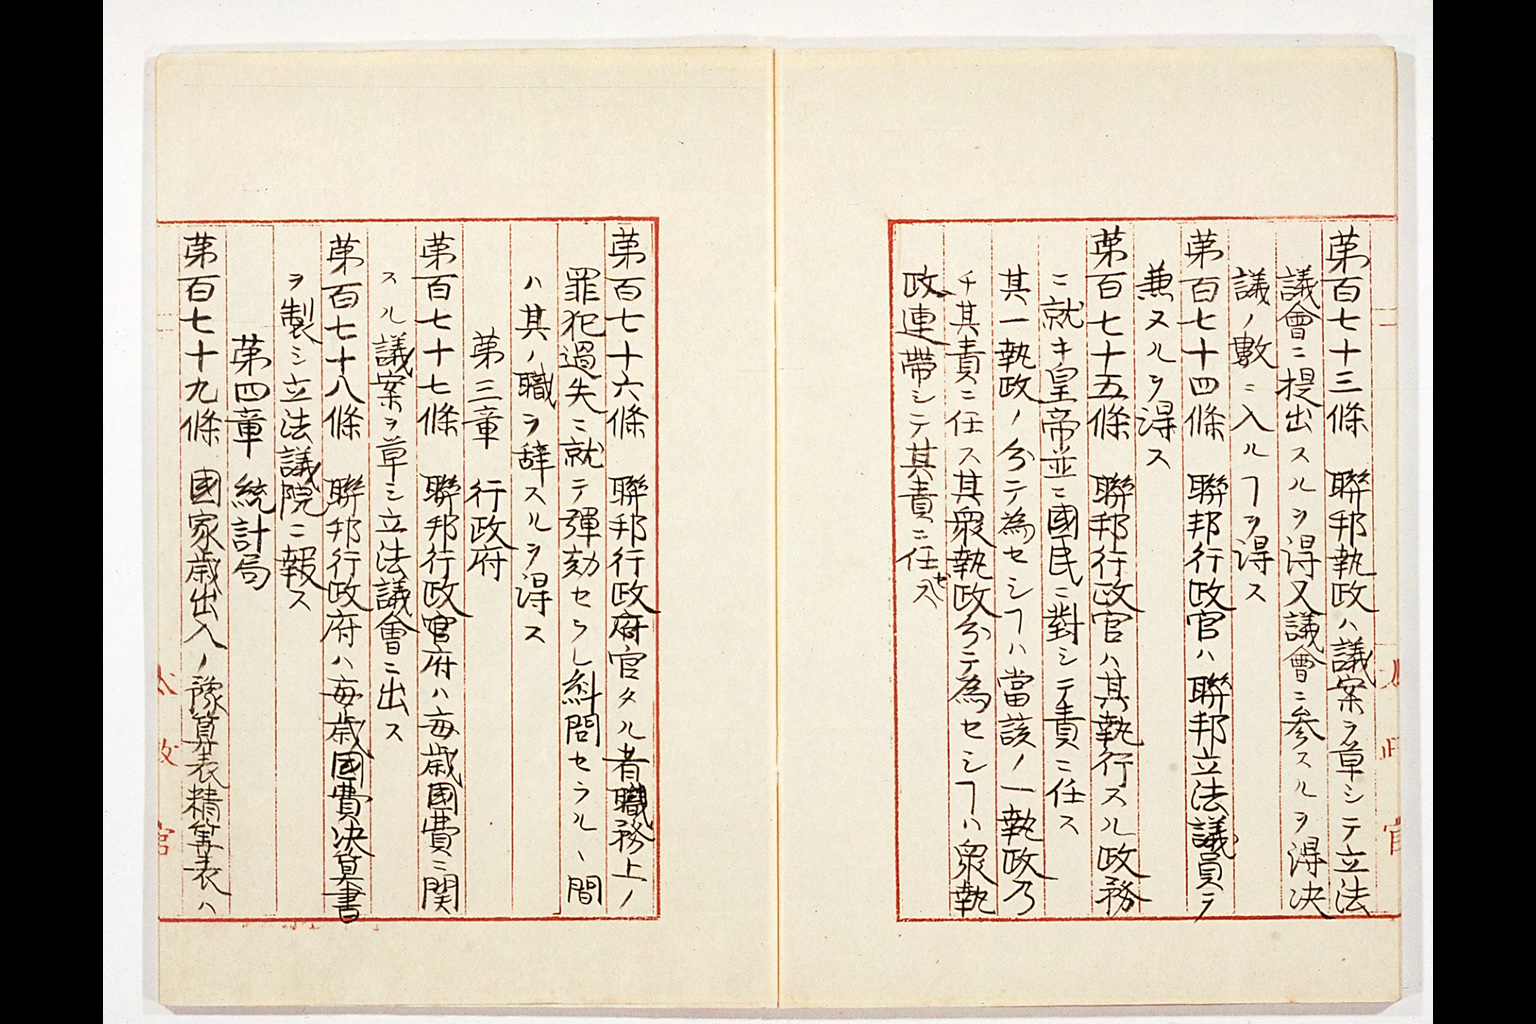 第百七十三條　聯邦執政ハ議案ヲ草シテ立法
議會ニ提出スルヲ得又議會ニ参スルヲ得決
議ノ數ニ入ルヿヲ得ス
第百七十四條　聯邦行政官ハ聯邦立法議員ヲ
兼ヌルヲ得ス
第百七十五條　聯邦行政官ハ其執行スル政務
ニ就キ皇帝並ニ國民ニ對シテ責ニ任ス
其一執政ノ分テ為セシヿハ當該ノ一執政乃
チ其責ニ任ス其衆執政分テ為セシヿハ衆執
政連帶シテ其責ニ任ス
第百七十六條　聯邦行政府官タル者職務上ノ
罪犯過失ニ就テ彈劾セラレ糾問セラルヽ間
ハ其ノ職ヲ辞スルヲ得ス
第三章　行政府
第百七十七條　聯邦行政官府ハ毎歳國費ニ関
スル議案ヲ草シ立法議會ニ出ス
第百七十八條　聯邦行政府ハ毎歳國費決算書
ヲ製シ立法議院ニ報ス
第四章　統計局
第百七十九條　國家歳出入ノ豫算表精算表ハ